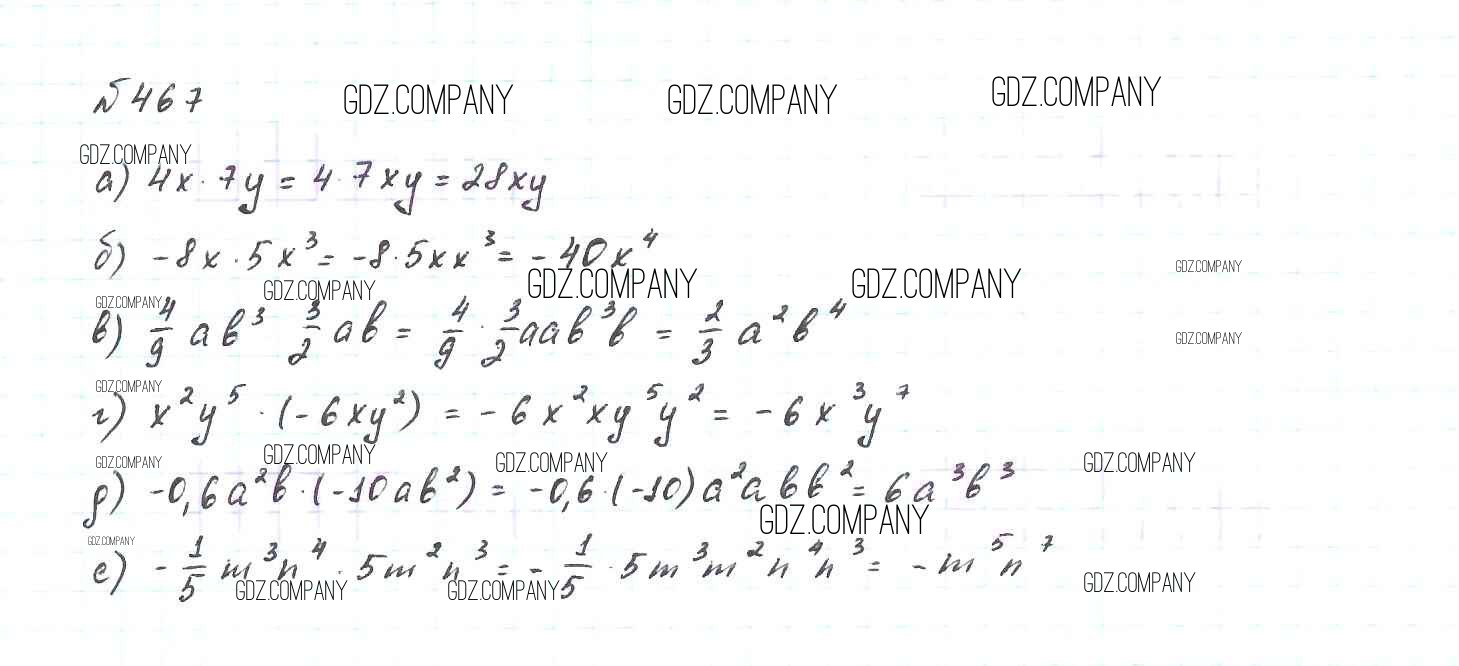 № 467 GDZ.COMPANY GDZ.COMPANY GDZ.COMPANY
GDZ.COMPANY
а) 4x · 7y = 4 · 7xy = 28xy
б) -8x · 5x³ = -8 · 5xx³ = -40x⁴
GDZ.COMPANY
GDZ.COMPANY GDZ.COMPANY GDZ.COMPANY
GDZ.COMPANY
в) 4/9 ab³ 3/2 ab = 4/9 · 3/2 aab³b = 2/3 a²b⁴
GDZ.COMPANY
GDZ.COMPANY
г) x²y⁵ · (-6xy²) = -6x²xy⁵y² = -6x³y⁷
GDZ.COMPANY GDZ.COMPANY GDZ.COMPANY GDZ.COMPANY
д) -0,6a²b · (-10ab²) = -0,6 · (-10)a²abb² = 6a³b³
GDZ.COMPANY
GDZ.COMPANY
е) -1/5 m³n⁴ · 5m²n³ = -1/5 · 5m³m²n⁴n³ = -m⁵n⁷
GDZ.COMPANY GDZ.COMPANY GDZ.COMPANY